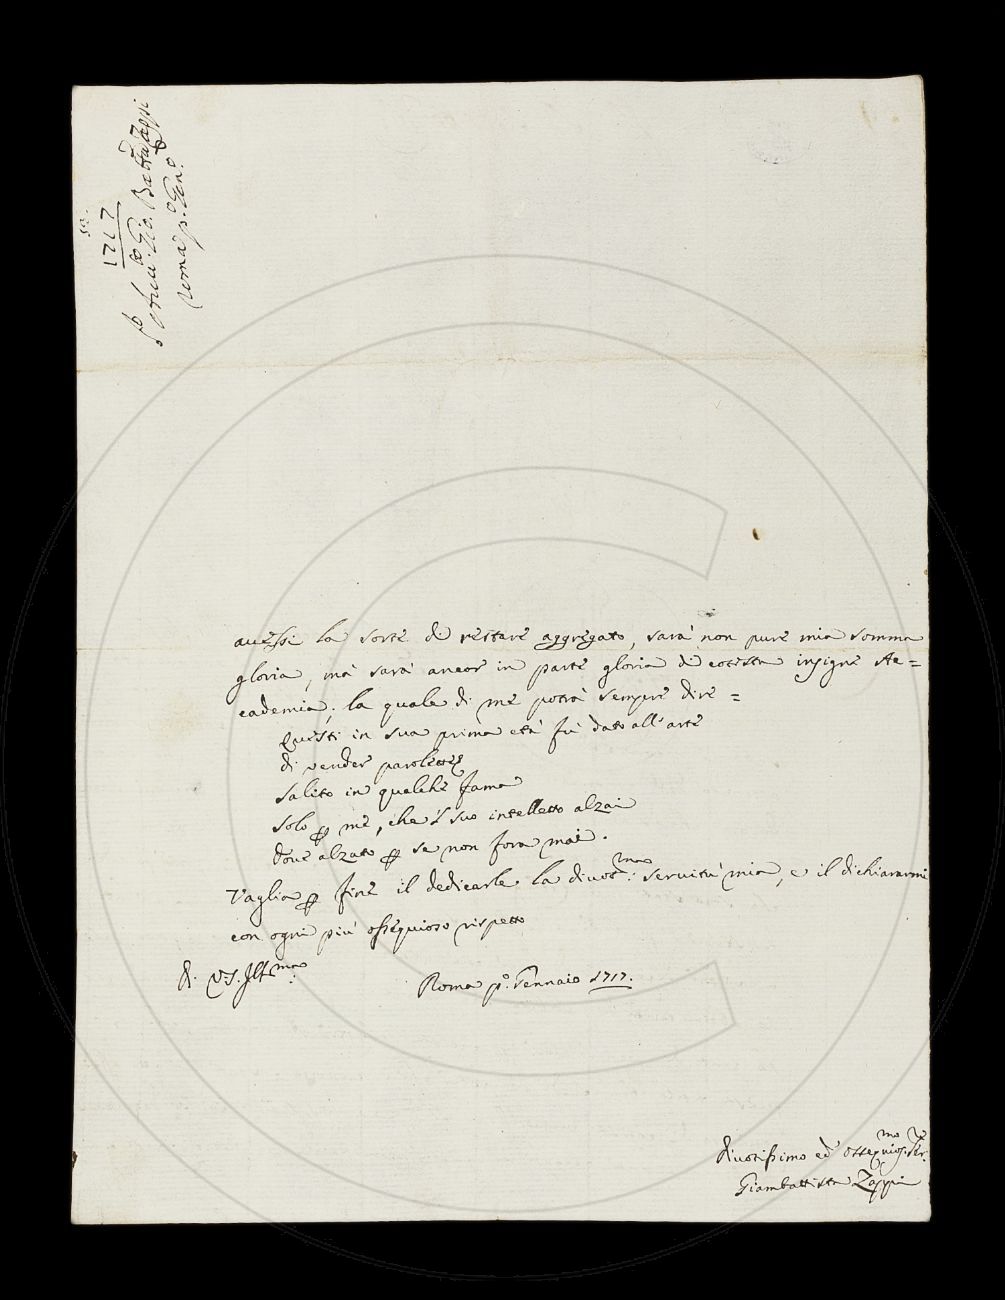 1717
Sr. Avv.to Gio. Batta Zappi
Roma p.o Gen.o
avessi la sorte di restare aggregato, sarà non pure mia somma
gloria, mà sarà ancor in parte gloria di cotesta insigne Ac=
cademia; la quale di me potrà sempre dire=
Questi in sua prima età fù dato all'arte
di vender parolette
Salito in qualche fama
solo p me, che 'l suo intelletto alzai
dove alzato p se non fora mai.
Vaglia p fine il dedicarle la divot.ma servitù mia, e il dichiararmi
con ogni più ossequioso rispetto
di VS. Ill.ma
Roma p.o Gennaio 1717.
Divotissimo ed ossequios.mo Ser.re
Giambattista Zappi